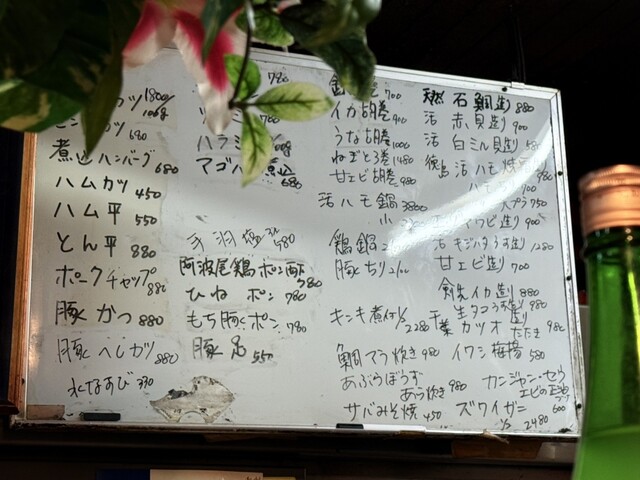 カツ 1800/100g
カツ 680
煮込ハンバーグ 680
ハムカツ 450
ハム平 550
とん平 880
ポークチャップ 880
豚かつ 880
豚ヘレカツ 880
水なすび 330
780
ハラミ
マゴハ 煮込 680
手羽 580
阿波尾鶏ポン酢 780
ひねポン 780
もち豚ポン 780
豚足 550
700
イカ胡巻 900
うな胡巻 1000
ねぎとろ巻 1480
甘エビ胡巻 980
活ハモ鍋 3800
小
鶏鍋
豚ちり 2100
キンキ煮付 1/2 2280
鯛アラ炊き 980
あぶらぼうず
あら炊き 980
サバみそ焼 450
天然 石鯛造り 880
活 赤貝造り 900
活 白ミル貝造り
徳島 活 ハモ
ハモ
750
アワビ造り 900
活 キジハタうす造り 1280
甘エビ造り 700
剣先イカ造り 980
生タコうす造り 980
千葉 カツオ たたき 980
イワシ梅揚 580
カンジャン・セウ
ズワイガニ 600
1/2 2480